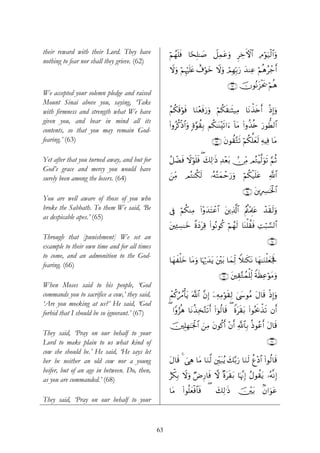 their reward with their Lord. They have
nothing to fear nor shall they grieve. (62)
We accepted your solemn pledge and raised
Mount Sinai above you, saying, 'Take
with firmness and strength what We have
given you, and bear in mind all its
contents, so that you may remain God-
fearing.' (63)
Yet after that you turned away, and but for
God's grace and mercy you would have
surely been among the losers. (64)
You are well aware of those of you who
broke the Sabbath. To them We said, 'Be
as despicable apes.' (65)
Through that [punishment] We set an
example to their own time and for all times
to come, and an admonition to the God-
fearing. (66)
When Moses said to his people, 'God
commands you to sacrifice a cow,' they said,
'Are you mocking at us?' He said, 'God
forbid that I should be so ignorant.' (67)
They said, 'Pray on our behalf to your
Lord to make plain to us what kind of
cow she should be.' He said, 'He says let
her be neither an old cow nor a young
heifer, but of an age in between. Do, then,
as you are commanded.' (68)
They said, 'Pray on our behalf to your
وَٱلْيَوْمِ ٱلْءَاخِرِ وَعَمِلَ صَٰلِحًا فَلَهُمْ
أَجْرُهُمْ عِندَ رَبِّهِمْ وَلَا خَوْفٌ عَلَيْهِمْ وَلَا
هُمْ يَحْزَنُونَ ۝
وَإِذْ أَخَذْنَا مِيثَٰقَكُمْ وَرَفَعْنَا فَوْقَكُمُ
ٱلطُّورَ خُذُوا۟ مَآ ءَاتَيْنَٰكُم بِقُوَّةٍ وَٱذْكُرُوا۟
مَا فِيهِ لَعَلَّكُمْ تَتَّقُونَ ۝
ثُمَّ تَوَلَّيْتُم مِّنۢ بَعْدِ ذَٰلِكَ ۖ فَلَوْلَا فَضْلُ
ٱللَّهِ عَلَيْكُمْ وَرَحْمَتُهُۥ لَكُنتُم مِّنَ
ٱلْخَٰسِرِينَ ۝
وَلَقَدْ عَلِمْتُمُ ٱلَّذِينَ ٱعْتَدَوْا۟ مِنكُمْ فِى
ٱلسَّبْتِ فَقُلْنَا لَهُمْ كُونُوا۟ قِرَدَةً خَٰسِـِٔينَ
۝
فَجَعَلْنَٰهَا نَكَٰلًا لِّمَا بَيْنَ يَدَيْهَا وَمَا خَلْفَهَا
وَمَوْعِظَةً لِّلْمُتَّقِينَ ۝
وَإِذْ قَالَ مُوسَىٰ لِقَوْمِهِۦٓ إِنَّ ٱللَّهَ يَأْمُرُكُمْ
أَن تَذْبَحُوا۟ بَقَرَةً ۖ قَالُوٓا۟ أَتَتَّخِذُنَا هُزُوًا ۖ
قَالَ أَعُوذُ بِٱللَّهِ أَنْ أَكُونَ مِنَ ٱلْجَٰهِلِينَ
۝
قَالُوا۟ ٱدْعُ لَنَا رَبَّكَ يُبَيِّن لَّنَا مَا هِىَ ۚ قَالَ
إِنَّهُۥ يَقُولُ إِنَّهَا بَقَرَةٌ لَّا فَارِضٌ وَلَا بِكْرٌ
عَوَانٌۢ بَيْنَ ذَٰلِكَ ۖ فَٱفْعَلُوا۟ مَا
63